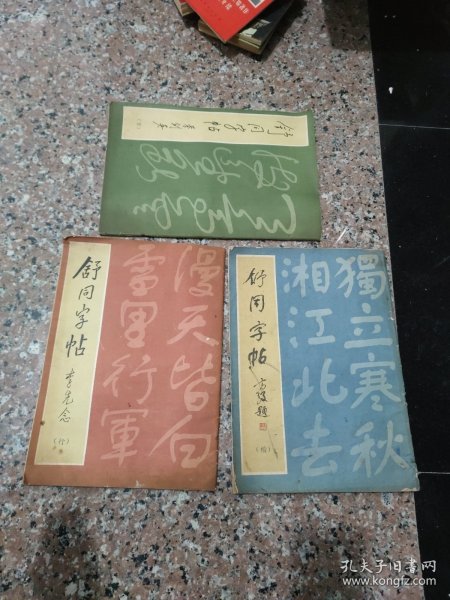 舒同字帖
(草)
舒同字帖
李先念
(行)
漫天皆白
雪里行軍
舒同字帖
(楷)
獨立寒秋
湘江北去
孔夫子旧书网
www.kongfz.com